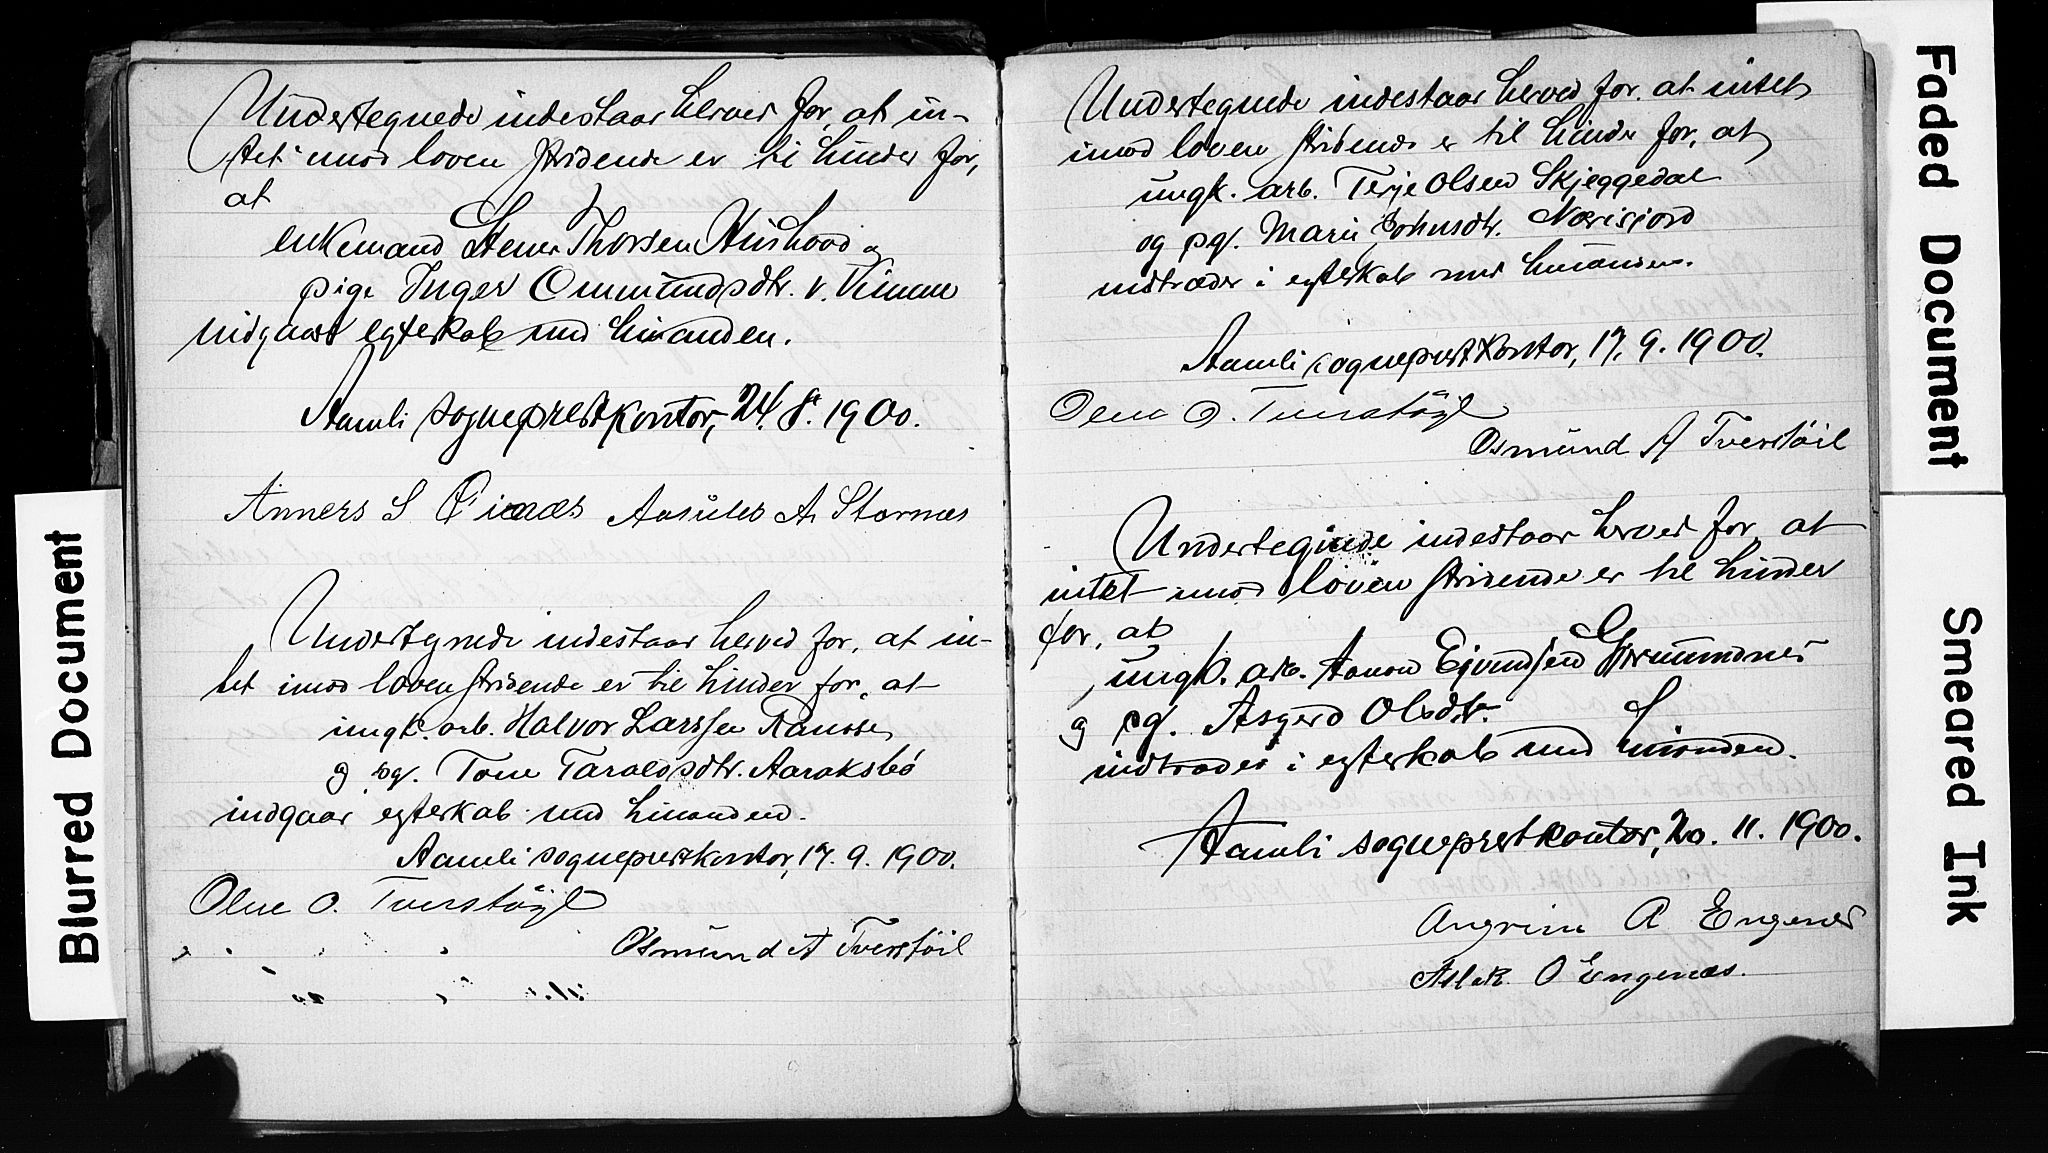 Undertegnede indestaar herved for, at in-
tet imod loven stridende er til hinder for,
at
enkemand Stener Thorsen Aushood og
pige Inger Ommundsdtr. v. Vimme
indgaar egteskab med hinanden.
Aamli sogneprestkontor, 24. 8. 1900.
Anners S Øinæs Aasulv A. Stornæs
Undertegnede indestaar herved for, at in-
tet imod loven stridende er til hinder for, at
ungk. arb. Halvor Larssen
og pg. Tone Taraldsdtr. Aaraksbø
indgaar egteskab med hinanden.
Aamli sogneprestkontor, 17. 9. 1900.
Olene O. Tverstøyl
Osmund A Tverstöil
Undertegnede indestaar herved for, at intet
imod loven stridende er til hinder for, at
ungk. arb. Terje Olsen Skjeggedal
og pg. Marie Johnsdtr. Nærisjord
indtræder i egteskab med hinanden.
Aamli sogneprestkontor, 17. 9. 1900.
Olene O. Tverstøyl
Osmund A Tverstöil
Undertegnede indestaar herved for, at
intet imod loven stridende er til hinder
for, at
ungk. arb. Aanon Ejvindsen Gjermundnes
og pg. Asgerd Olsdtr.
indtræder i egteskab med hinanden.
Aamli sogneprestkontor, 20. 11. 1900.
Angrim A Engenes
Aslak O Engenæs.
Blurred Document
Faded Document
Smeared Ink